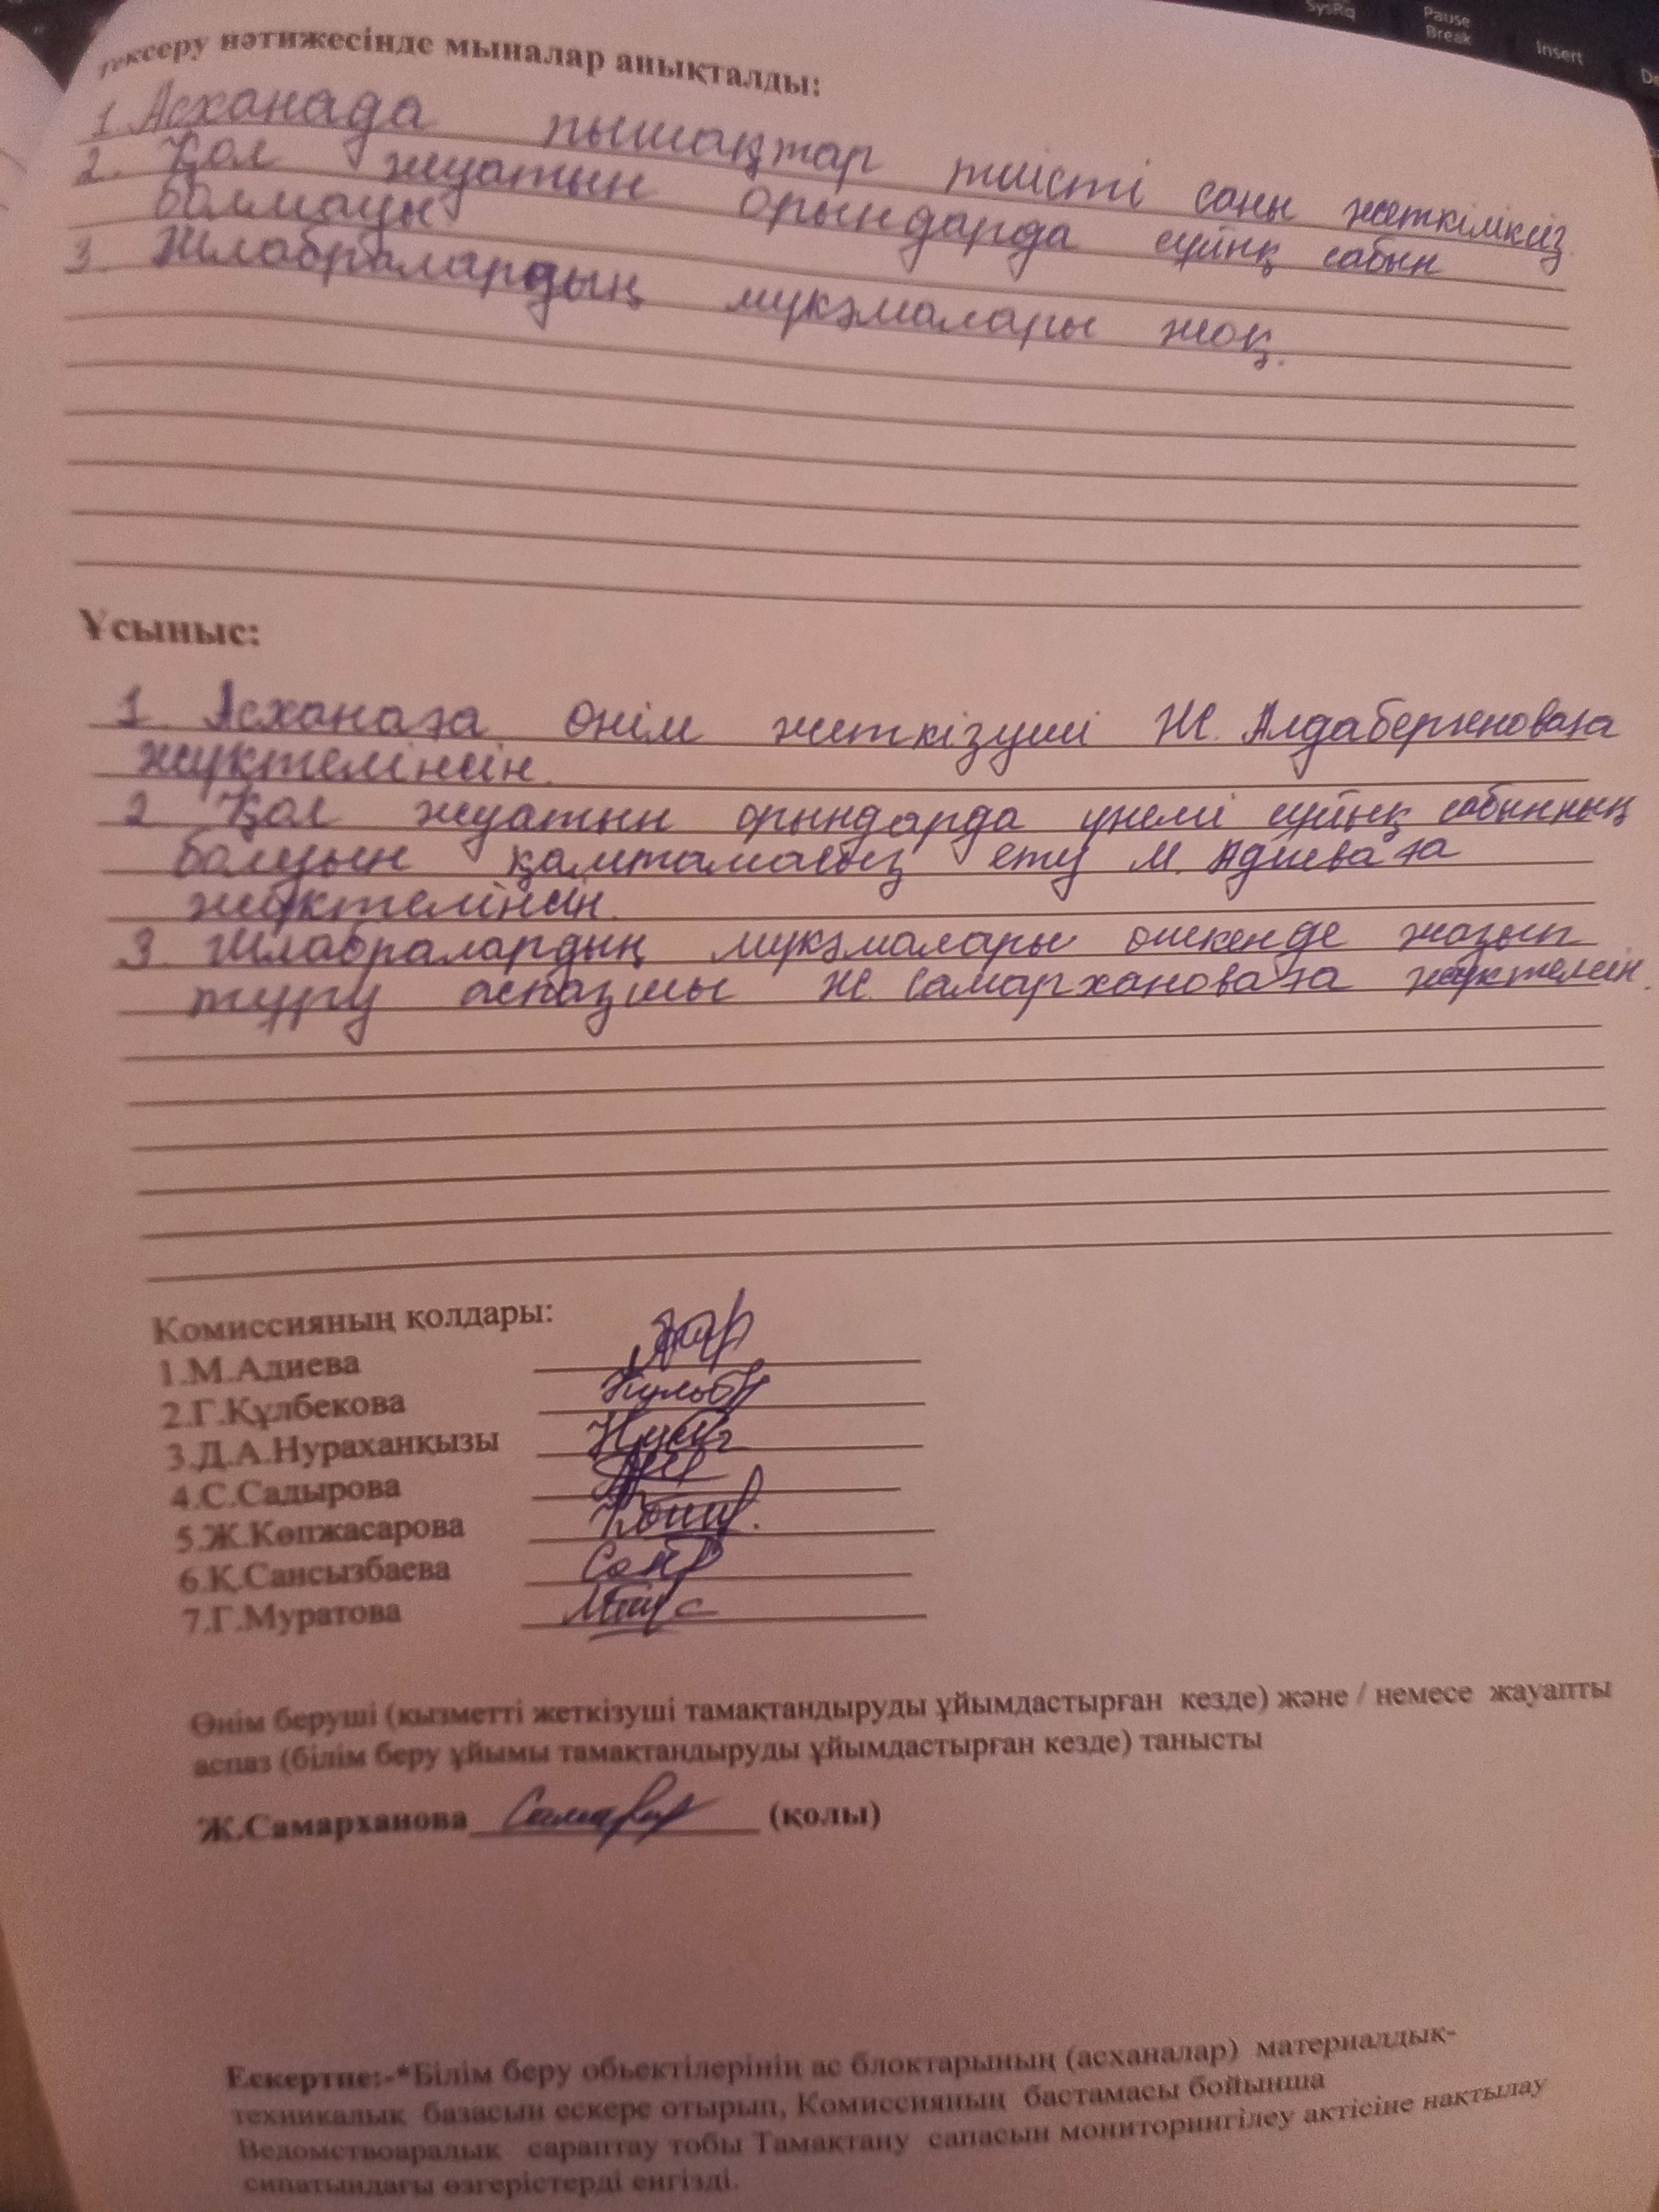 SysRq
Pause
Break
Insert
тексеру нәтижесінде мыналар анықталды:
1. Асханада пышақтар тиісті саны жеткіліксіз.
2. Қол жуатын орындарда сұйық сабын
болмауы
3. Жлабралардың мукәмалары жоқ.
Ұсыныс:
1. Асханаға өнім жеткізуші Ж. Алдабергеноваға
жүктелінсін.
2 Қол жуатын орындарда үнемі сұйық сабынның
болуын қамтамасыз ету М. Адиеваға
жүктелінсін.
3. Жлабралардың мукәмалары өшкенде жазып
тұру аспазшы Ж. Самархановаға жүктелсін.
Комиссияның қолдары:
1.М.Адиева
2.Г.Құлбекова
3.Д.А.Нураханқызы
4.С.Садырова
5.Ж.Көпжасарова
6.Қ.Сансызбаева
7.Г.Муратова
Өнім беруші (қызметті жеткізуші тамақтандыруды ұйымдастырған кезде) және / немесе жауапты
аспаз (білім беру ұйымы тамақтандыруды ұйымдастырған кезде) танысты
Ж.Самарханова (қолы)
Ескертпе:-*Білім беру обьектілерінің ас блоктарының (асханалар) материалдық-
техникалық базасын ескере отырып, Комиссияның бастамасы бойынша
Ведомствоаралық сараптау тобы Тамақтану сапасын мониторингілеу актісіне нақтылау
сипатындағы өзгерістерді енгізді.